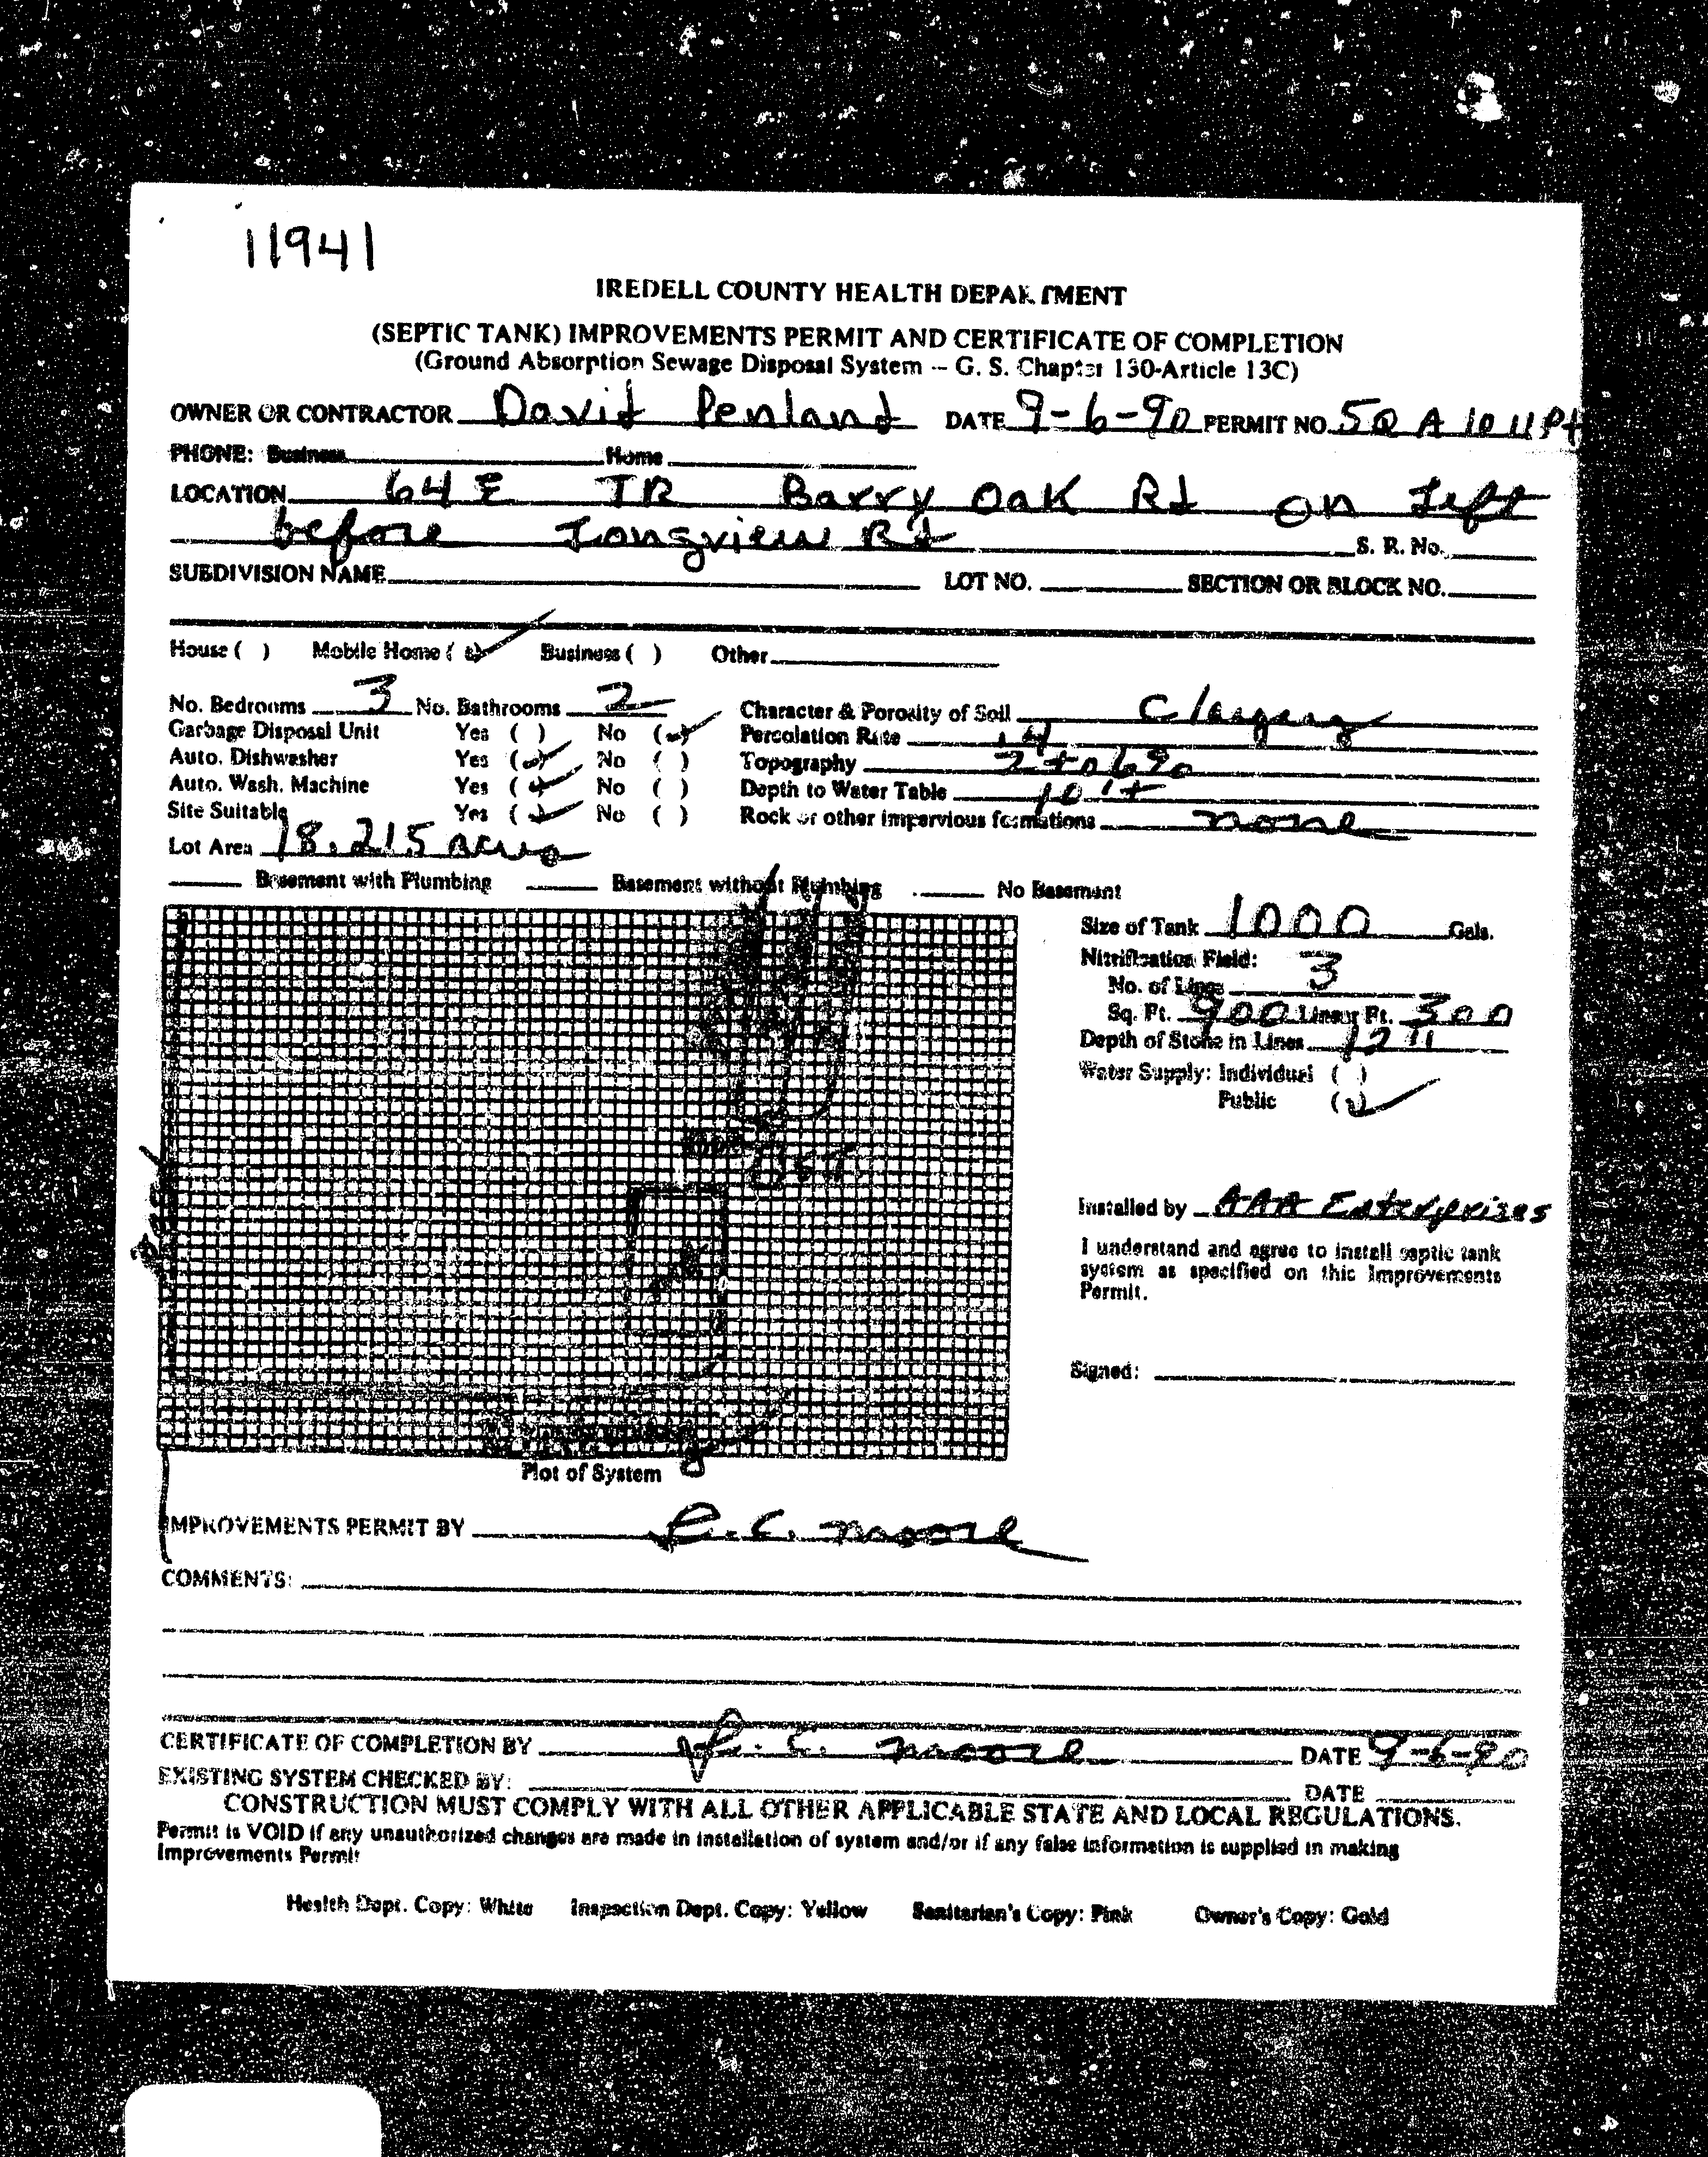 11941
IREDELL COUNTY HEALTH DEPARTMENT
(SEPTIC TANK) IMPROVEMENTS PERMIT AND CERTIFICATE OF COMPLETION
(Ground Absorption Sewage Disposal System -- G. S. Chapter 130-Article 13C)
OWNER OR CONTRACTOR David Penland DATE 9-6-90 PERMIT NO. 5Q A 10 11 Pt
PHONE: Business Home
LOCATION 64 E TR Barry Oak Rd on Left
before Longview Rd S. R. No.
SUBDIVISION NAME LOT NO. SECTION OR BLOCK NO.
House ( ) Mobile Home (✓) Business ( ) Other
No. Bedrooms 3 No. Bathrooms 2 Character & Porosity of Soil
Garbage Disposal Unit Yes ( ) No (✓) Percolation Rate .4
Auto. Dishwasher Yes (✓) No ( ) Topography 2 to 6%
Auto. Wash. Machine Yes (✓) No ( ) Depth to Water Table 10'+
Site Suitable Yes (✓) No ( ) Rock or other impervious formations none
Lot Area 18.215 acres
Basement with Plumbing Basement without Plumbing No Basement
Size of Tank 1000 Gals.
Nitrification Field:
No. of Lines 3
Sq. Ft. 900 Linear Ft. 300
Depth of Stone in Lines 12"
Water Supply: Individual ( )
Public (✓)
Installed by AAA Enterprises
I understand and agree to install septic tank
system as specified on this Improvements
Permit.
Signed:
Plot of System
IMPROVEMENTS PERMIT BY R.C. Moore
COMMENTS:
CERTIFICATE OF COMPLETION BY R.C. Moore DATE 9-6-90
EXISTING SYSTEM CHECKED BY: DATE
CONSTRUCTION MUST COMPLY WITH ALL OTHER APPLICABLE STATE AND LOCAL REGULATIONS.
Permit is VOID if any unauthorized changes are made in installation of system and/or if any false information is supplied in making
Improvements Permit
Health Dept. Copy: White Inspection Dept. Copy: Yellow Sanitarian's Copy: Pink Owner's Copy: Gold